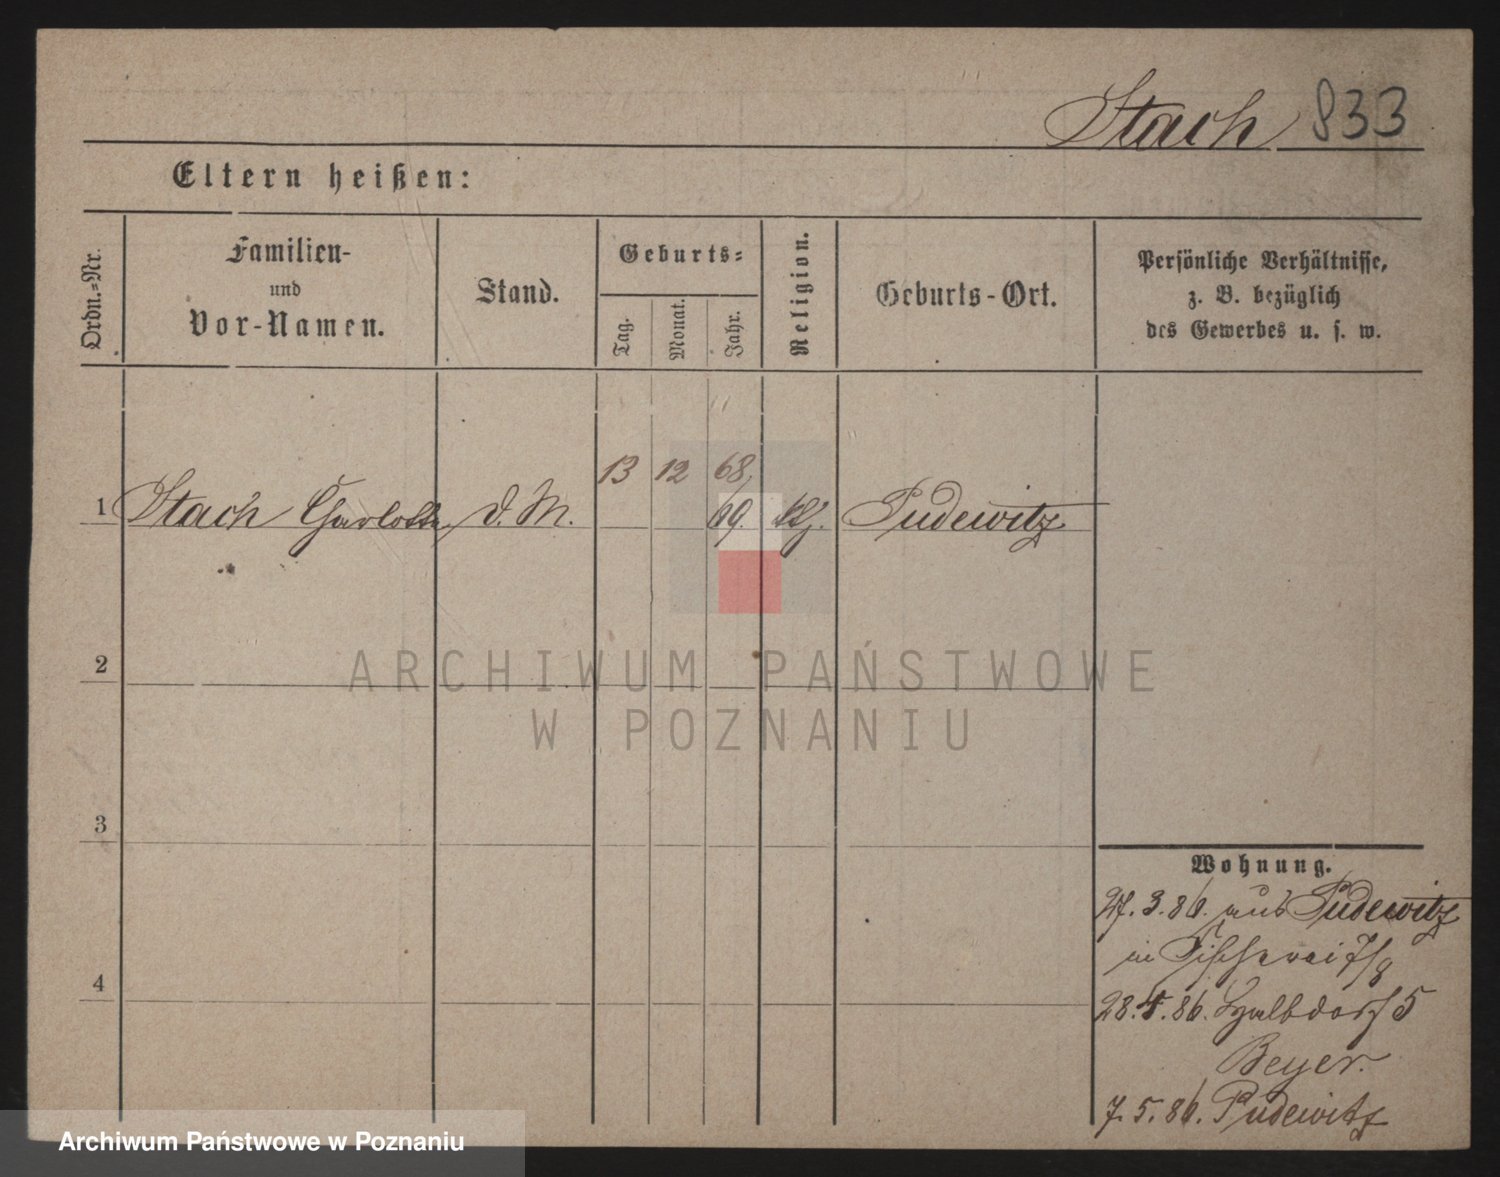 Stach 833
Eltern heißen:
Ordn.=Nr.
Familien-
und
Vor-Namen.
Stand.
Geburts=
Tag.
Monat.
Jahr.
Religion.
Geburts-Ort.
Persönliche Verhältnisse,
z. B. bezüglich
des Gewerbes u. s. w.
13 12 68/
1 Stach Charlotte d. M. 69. Pudewitz
2
ARCHIWUM PAŃSTWOWE
W POZNANIU
3
Wohnung.
27.3.86. aus Pudewitz
in Fischerei 7/8
4
28.4.86. Halbdorf 5
Beyer.
7.5.86. Pudewitz
Archiwum Państwowe w Poznaniu